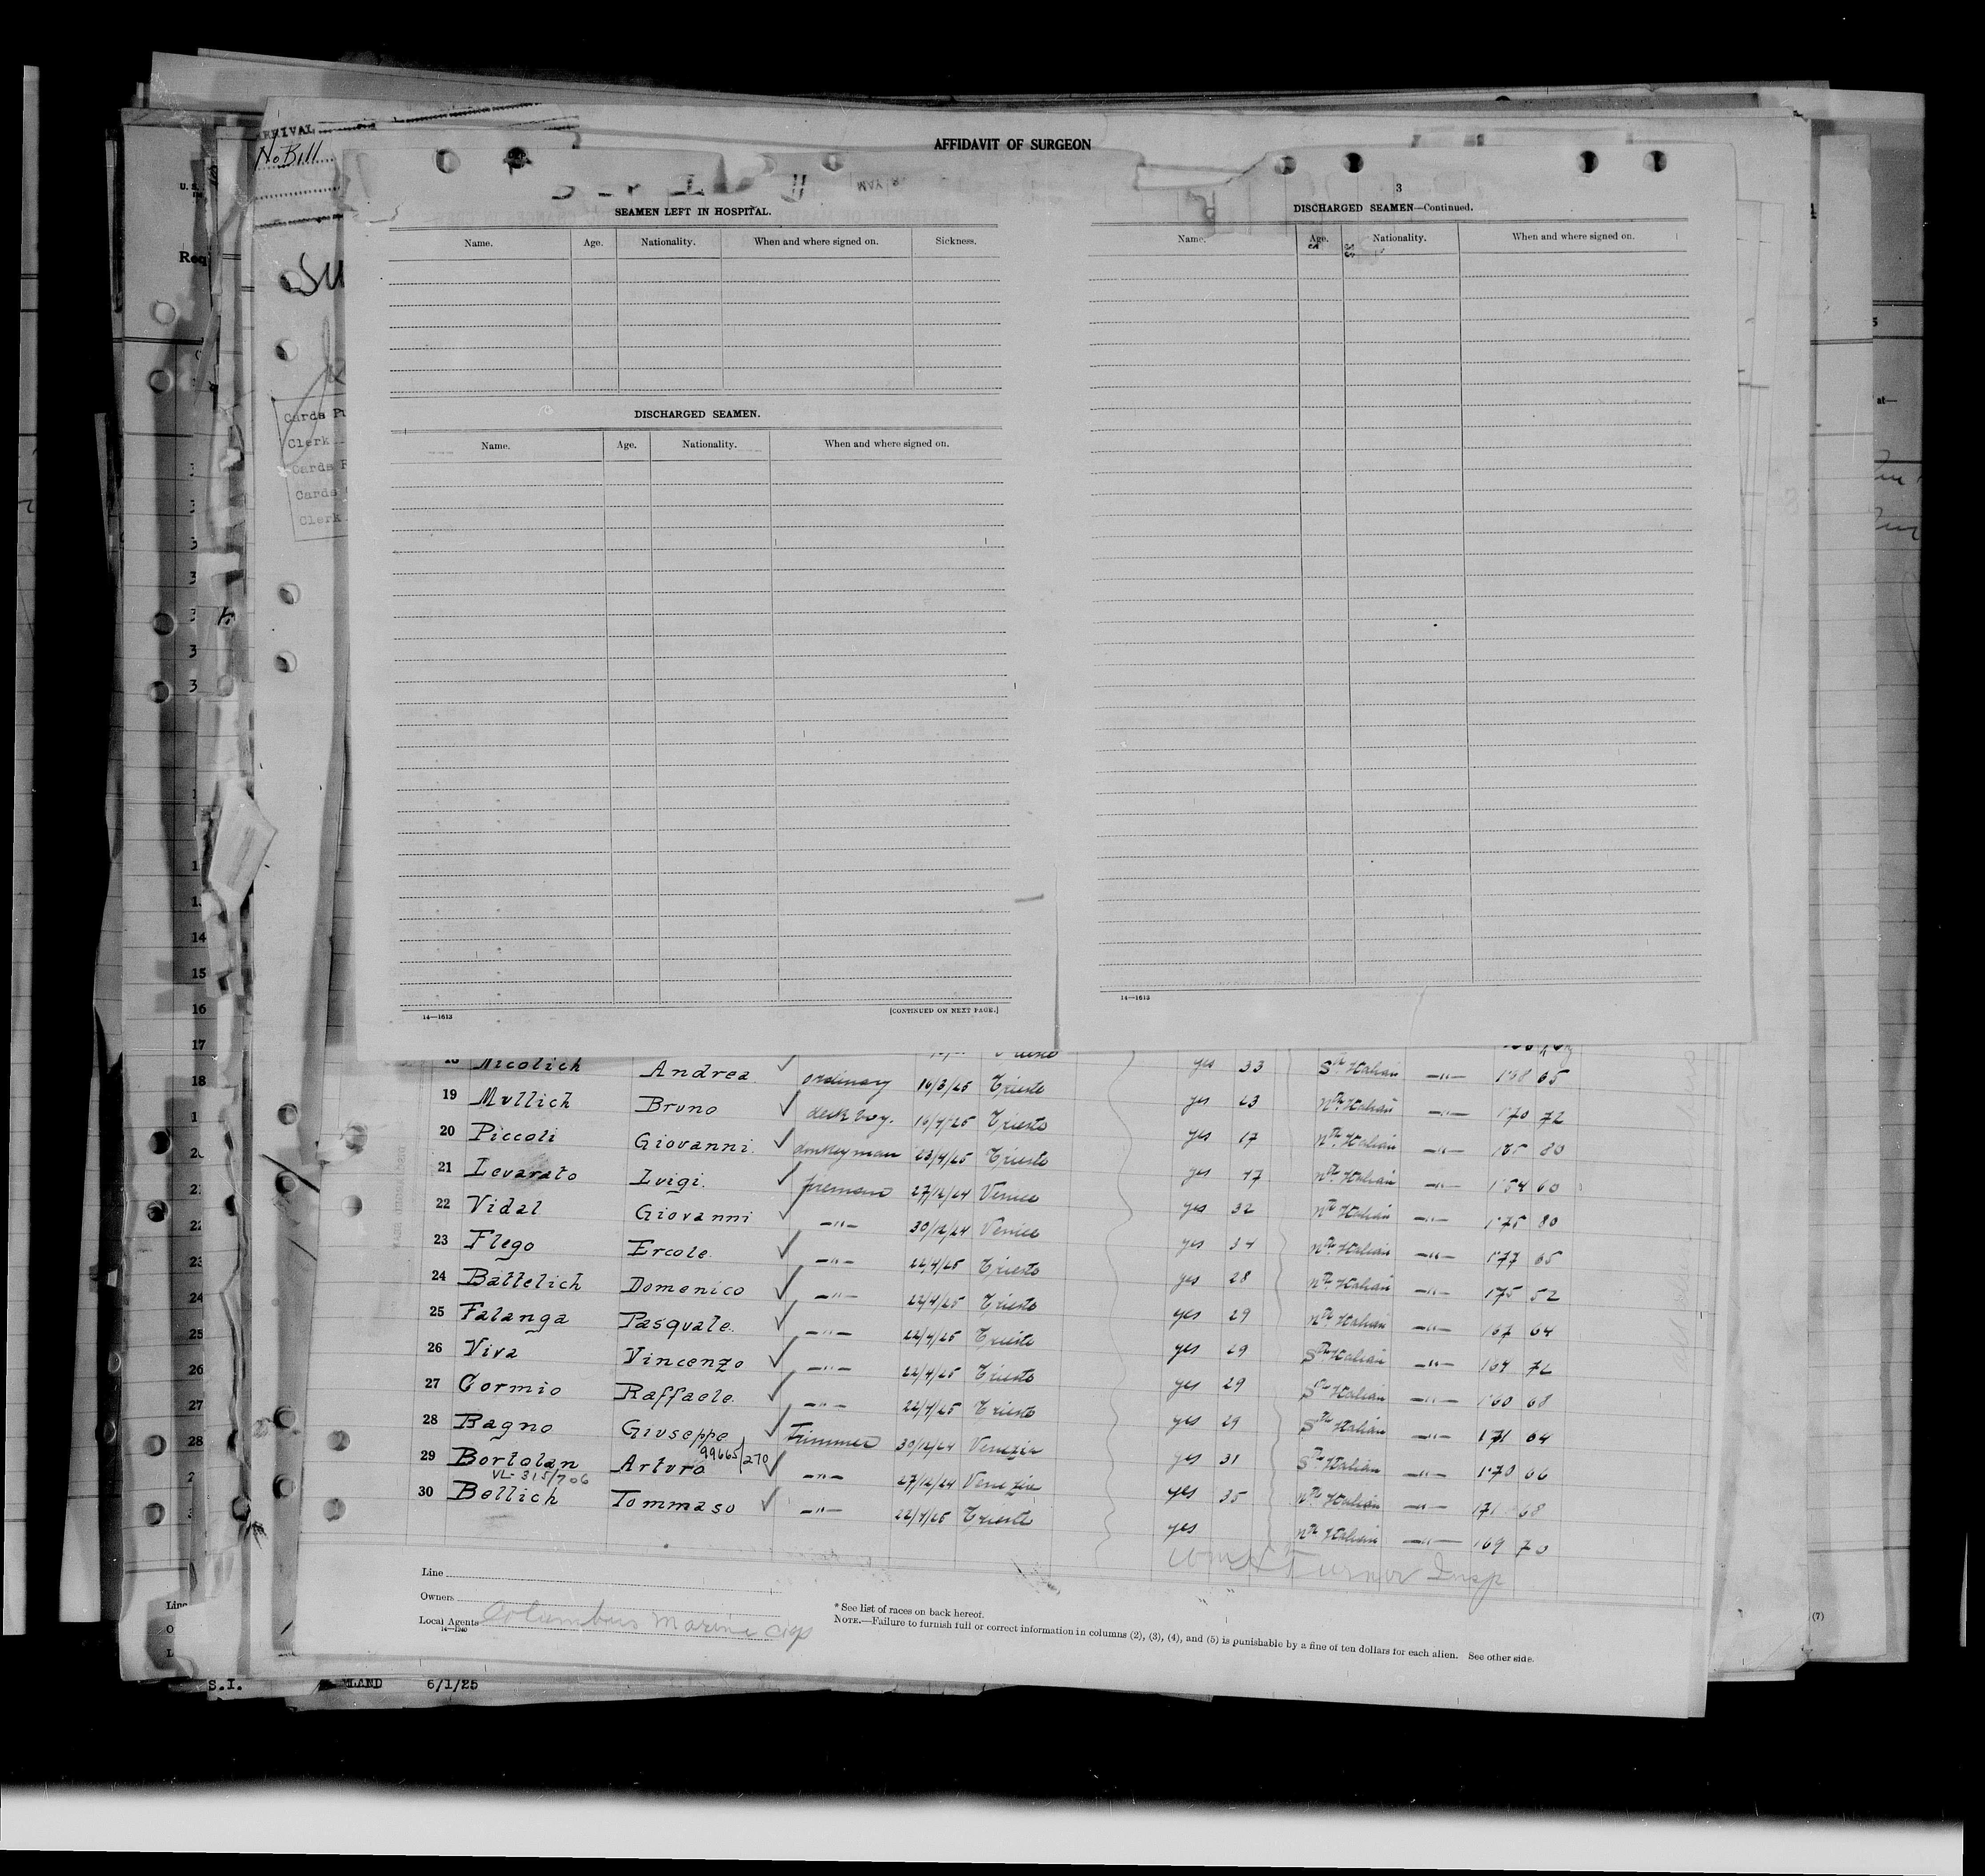 AFFIDAVIT OF SURGEON
ARRIVAL
No Bill
U. S.
Req
SEAMEN LEFT IN HOSPITAL.
Name. Age. Nationality. When and where signed on. Sickness.
DISCHARGED SEAMEN.
Name. Age. Nationality. When and where signed on.
14—1613 [CONTINUED ON NEXT PAGE.]
3
DISCHARGED SEAMEN—Continued.
Name. Age. Nationality. When and where signed on.
14—1613
Cards
Clerk
Cards
Cards
Clerk
at—
14
15
16
17
18
22
23
24
25
26
27
28
18 Nicolich Andrea ordinary 16/3/25 Trieste yes 33 Sth Italian —"— 168 65
19 Mullich Bruno ✓ deck boy. 16/4/25 Trieste yes 23 Nth Italian —"— 170 72
20 Piccoli Giovanni ✓ donkeyman 23/4/25 Trieste yes 17 Nth Italian —"— 80
21 Levarato Luigi. ✓ fireman 27/12/24 Venice yes 47 Nth Italian —"— 154 60
22 Vidal Giovanni ✓ —"— 30/12/24 Venice yes 32 Nth Italian —"— 175 80
23 Flego Ercole. ✓ —"— 22/4/25 Trieste yes 34 Nth Italian —"— 177 65
24 Battelich Domenico ✓ —"— 22/4/25 Trieste yes 28 Nth Italian —"— 175 52
25 Falanga Pasquale. ✓ —"— 22/4/25 Trieste yes 29 Nth Italian —"— 167 64
26 Viva Vincenzo ✓ —"— 22/4/25 Trieste yes 29 Sth Italian —"— 164 72
27 Cormio Raffaele. ✓ —"— 22/4/25 Trieste yes 29 Sth Italian —"— 160 68
28 Bagno Giuseppe ✓ Trimmer 30/12/24 Venezia yes 29 Sth Italian —"— 171 64
99665/270
29 Bortolan Arturo ✓ —"— 27/12/24 Venezia yes 31 Sth Italian —"— 170 66
VL-315/706
30 Bellich Tommaso ✓ —"— 22/4/25 Trieste yes 35 Nth Italian —"— 171 68
yes Nth Italian —"— 169 70
Turner Insp
Line
Owners
Local Agents Columbus Marine
14—1240
* See list of races on back hereof.
NOTE.—Failure to furnish full or correct information in columns (2), (3), (4), and (5) is punishable by a fine of ten dollars for each alien. See other side.
(7)
S.I. 6/1/25